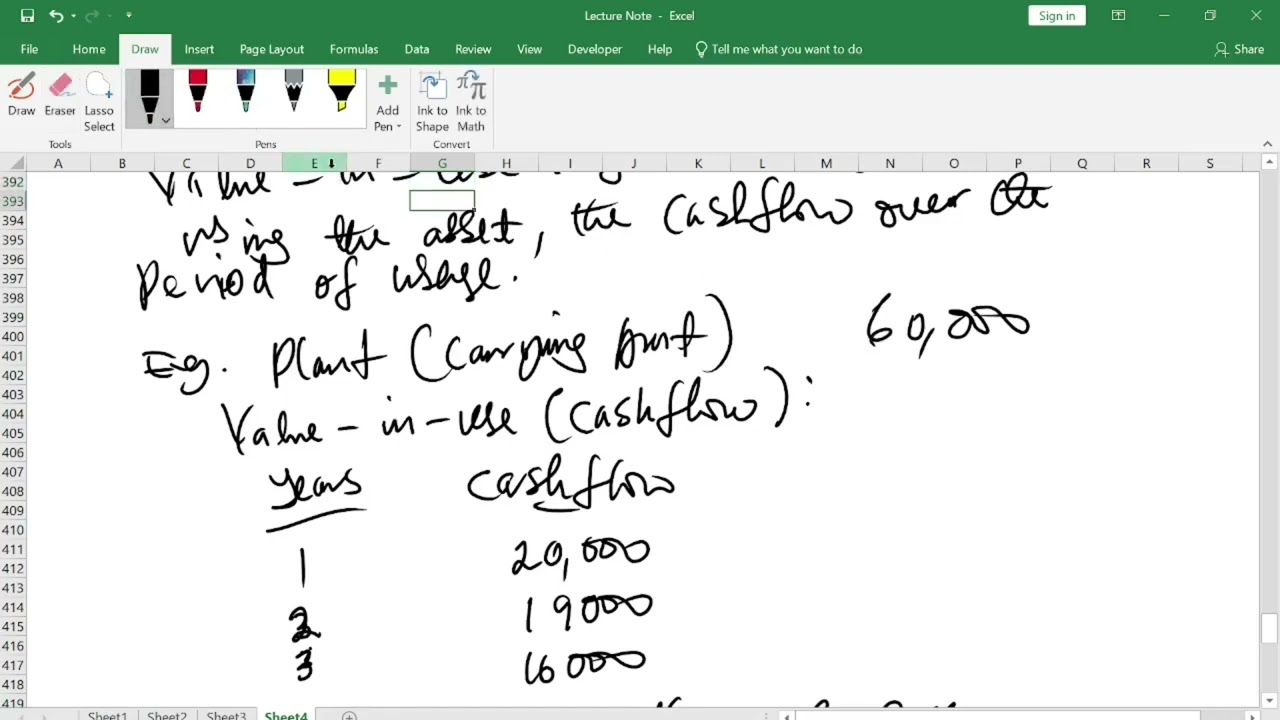 Lecture Note - Excel
Sign in
File Home Draw Insert Page Layout Formulas Data Review View Developer Help Tell me what you want to do Share
Draw Eraser Lasso Select Add Pen Ink to Shape Ink to Math
Tools Pens Convert
A B C D E F G H I J K L M N O P Q R S
392
393
394
395
396
397
398
399
400
401
402
403
404
405
406
407
408
409
410
411
412
413
414
415
416
417
418
419
Value-in-use
using the asset, the cashflow over the
Period of usage.
Eg. Plant (Carrying amt) 60,000
Value-in-use (cashflow):
Years Cashflow
1 20,000
2 19000
3 16000
Sheet1 Sheet2 Sheet3 Sheet4